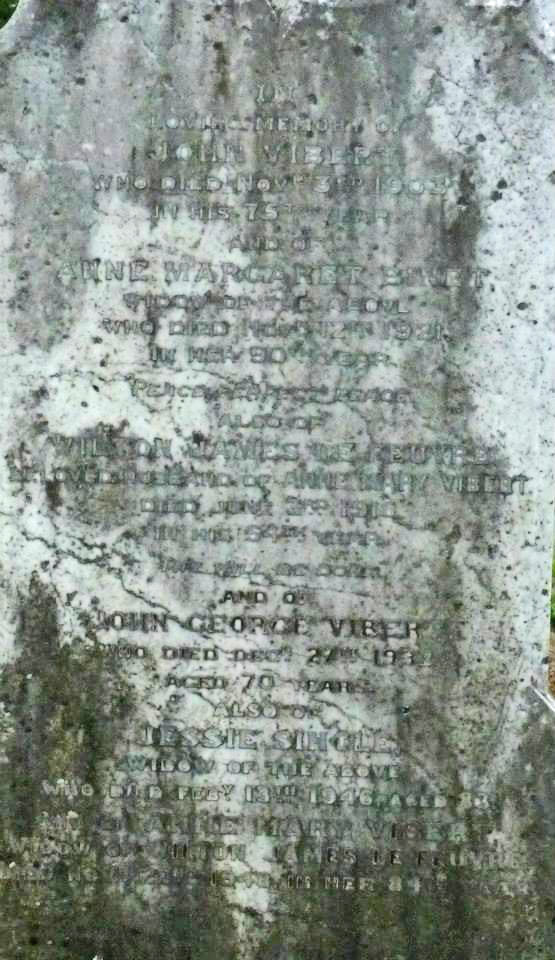 IN
LOVING MEMORY OF
JOHN VIBERT
WHO DIED NOVR 3RD
IN HIS 75TH YEAR
AND OF
ANNE MARGARET
WIDOW OF THE ABOVE
WHO DIED 12TH 1921
IN HER 90TH YEAR
PEACE, PERFECT PEACE
ALSO OF
WILTON JAMES LE FEUVRE
BELOVED HUSBAND OF ANNE MARY VIBERT
DIED JUNE
IN HIS 54TH YEAR
THY WILL BE DONE
AND OF
JOHN GEORGE VIBERT
WHO DIED DECR 27TH
AGED 70 YEARS
ALSO OF
JESSIE
WIDOW OF THE ABOVE
WHO DIED FEBY 13TH 1946, AGED
ANNE MARY VIBERT
WIDOW OF WILTON JAMES LE FEUVRE
DIED IN HER YEAR